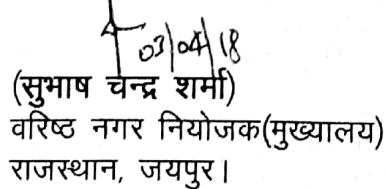 03/04/18
(सुभाष चन्द्र शर्मा)
वरिष्ठ नगर नियोजक(मुख्यालय)
राजस्थान, जयपुर।